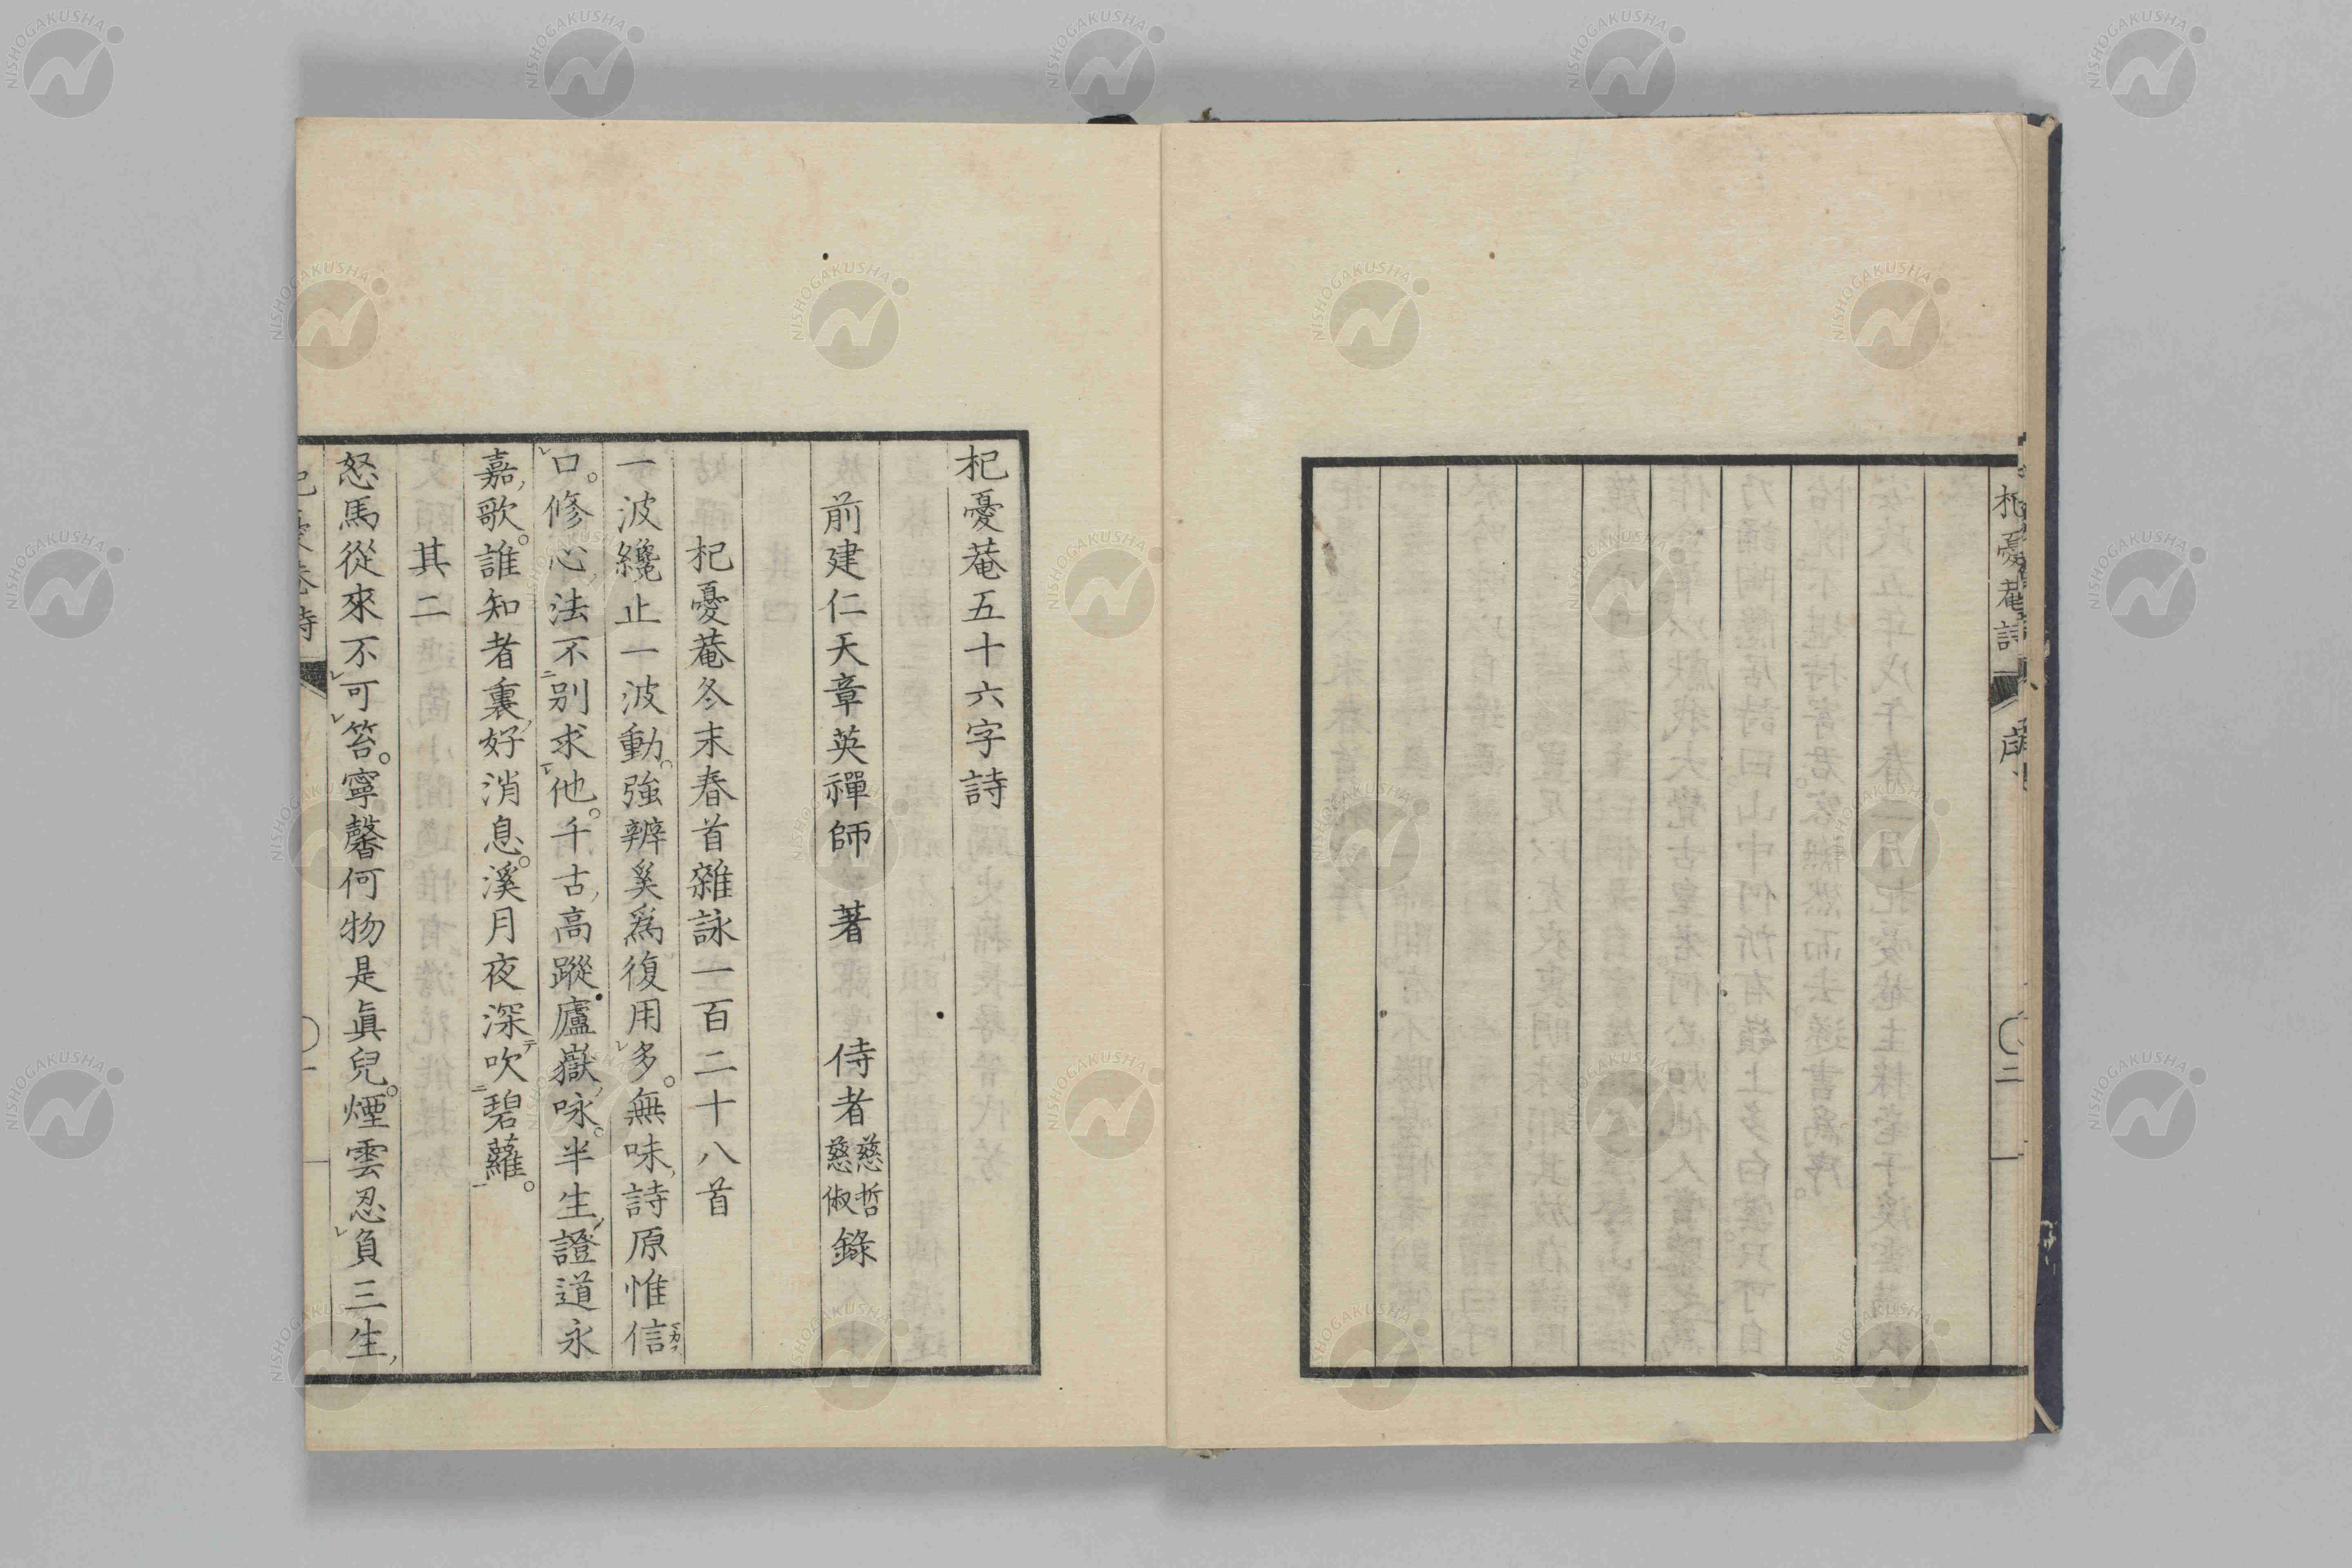 杞憂菴詩
序
二
杞憂菴五十六字詩
前建仁天章英禪師 著 侍者慈哲慈俶錄
杞憂菴冬末春首雜詠一百二十八首
一波纔止一波動。強辨奚爲復用多。無味詩原惟信
口。修心法不別求他。千古高蹤廬嶽咏。半生證道永
嘉歌。誰知者裏好消息。溪月夜深吹碧蘿。
其二
怒馬從來不可笞。寧馨何物是眞兒。煙雲忍負三生
NISHOGAKUSHA